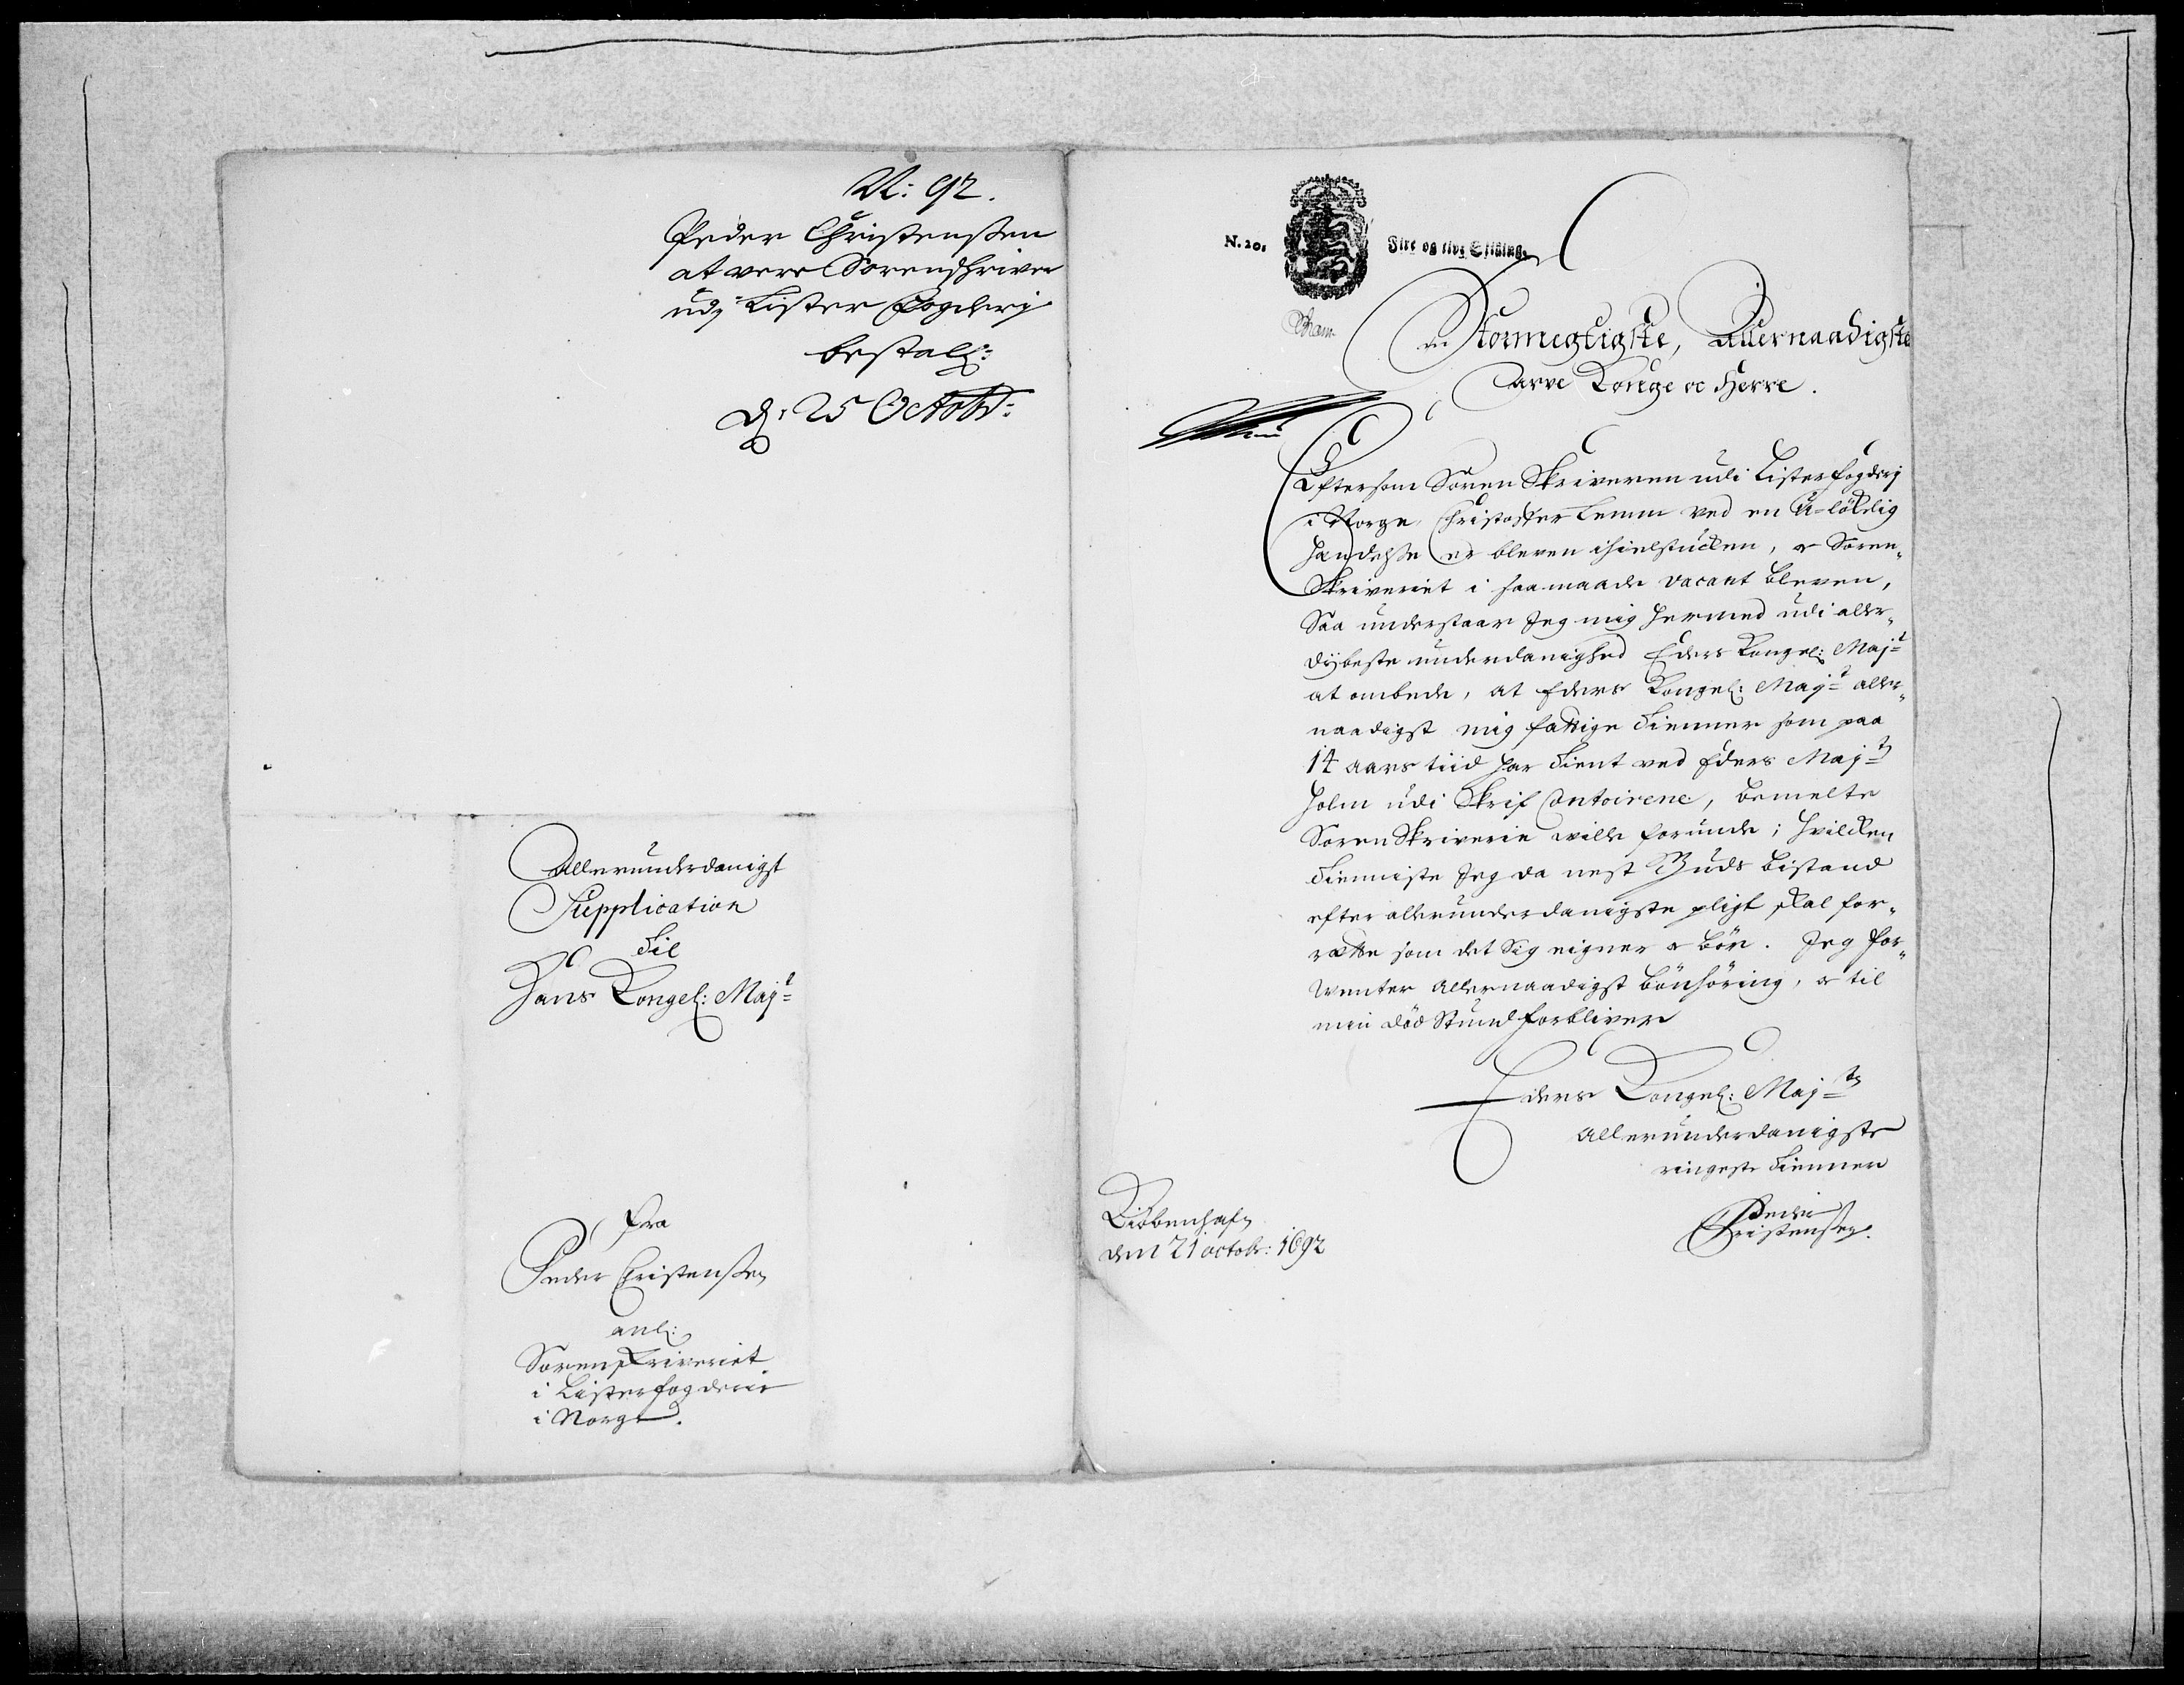 N: 92.
Peder Christensen
at vere Sorenschriver
udj Lister Fogderj
bestalh:
d: 25 Octobr:
Allerunderdanigst
Supplication
Til
Hans Kongel: Majt
fra
Peder Christensen
anl:
Sorenskriveriet
i Listerfogderie
i Norge.
N. 20.
Fire og tive Skilling.
Stormegtigste, Allernaadigste
Arve Konge oc Herre.
Eftersom Soren Skriveren udi Listerfogderj
i Norge, Christoffer Lemm ved en u-lökelig
handelse er bleven ihielstucken, oc Soren-
Skriveriet i saamaade vacant bleven,
Saa understaar Jeg mig hermed udi aller-
dybeste underdanighed Eders Kongel: Majt
at ombede, at Eders Kongel: Majt aller-
naadigst mig fattige Tienner som paa
14 aars tiid har tient ved Eders Majts
Holm udi Skrif Contoirene, bemelte
Soren Skriverie wille forunde; hvilcken
Tienniste Jeg da nest Guds bistand
efter allerunderdanigste pligt skal for-
rætte som det Sig eigner oc bör. Jeg for-
wenter Allernaadigst bönhöring, oc til
min död Stund forbliver
Eders Kongel: Majts
Allerunderdanigste
ringeste Tienner
Peder
Christensen.
Kiöbenhafn
den 21 octobr: 1692